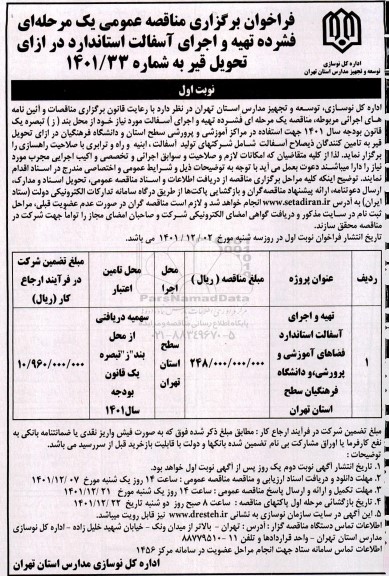 فراخوان برگزاری مناقصه عمومی یک مرحله‌ای
فشرده تهیه و اجرای آسفالت استاندارد در ازای
تحویل قیر به شماره ۱۴۰۱/۳۳
اداره کل نوسازی
توسعه و تجهیز مدارس استان تهران
نوبت اول
اداره کل نوسازی، توسعه و تجهیز مدارس استان تهران در نظر دارد با رعایت قانون برگزاری مناقصات و آئین نامه
های اجرائی مربوطه، مناقصه یک مرحله ای فشرده تهیه و اجرای آسفالت مورد نیاز خود از محل بند ( ز ) تبصره یک
قانون بودجه سال ۱۴۰۱ جهت استفاده در مراکز آموزشی و پرورشی سطح استان و دانشگاه فرهنگیان در ازای تحویل
قیر به تامین کنندگان ذیصلاح آسفالت شامل شرکتهای تولید آسفالت، ابنیه و راه و ترابری با صلاحیت راهسازی را
برگزار نماید. لذا از کلیه متقاضیان که امکانات لازم و صلاحیت و سوابق اجرائی و تخصصی و اکیپ اجرایی مجرب مورد
نیاز را دارا میباشند دعوت بعمل می آید با توجه به توضیحات ذیل و شرایط عمومی و اختصاصی مندرج در اسناد اقدام
نمایند. توضیح اینکه کلیه مراحل برگزاری مناقصه از دریافت اطلاعات و اسناد مناقصه عمومی، تحویل اسناد و مدارک،
ارسال دعوتنامه، ارائه پیشنهاد مناقصه گران و بازگشایی پاکت‌ها از طریق درگاه سامانه تدارکات الکترونیکی دولت (ستاد
ایران) به آدرس www.setadiran.ir انجام خواهد شد و لازم است مناقصه گران در صورت عدم عضویت قبلی، مراحل
ثبت نام در سایت مذکور و دریافت گواهی امضای الکترونیکی شرکت و صاحبان امضای مجاز را تواما جهت شرکت در
مناقصه محقق سازند.
تاریخ انتشار فراخوان نوبت اول در روزسه شنبه مورخ ۱۴۰۱/۱۲/۰۲ می باشد.
ردیف
عنوان پروژه
مبلغ مناقصه ( ریال )
محل اجرا
محل تامین اعتبار
مبلغ تضمین شرکت در فرآیند ارجاع کار (ریال)
۱
تهیه و اجرای آسفالت استاندارد فضاهای آموزشی و پرورشی،و دانشگاه فرهنگیان سطح استان تهران
۲۴۸/۰۰۰/۰۰۰/۰۰۰
سطح استان تهران
سهمیه دریافتی از محل بند"ز"تبصره یک قانون بودجه سال۱۴۰۱
۱۰/۹۶۰/۰۰۰/۰۰۰
ParsNamadData
۰۲۱-۸۸۳۴۹۶۷۰-۵
مبلغ تضمین شرکت در فرآیند ارجاع کار : مطابق مبلغ ذکر شده فوق که به صورت فیش واریز نقدی یا ضمانتنامه بانکی به
نفع کارفرما یا اوراق مشارکت بی نام تضمین شده بانکها و دولت با قابلیت بازخرید قبل از سررسید می باشد.
توضیحات :
۱. تاریخ انتشار آگهی نوبت دوم یک روز پس از آگهی نوبت اول خواهد بود.
۲. مهلت دانلود و دریافت اسناد ارزیابی و مناقصه مناقصه عمومی : ساعت ۱۴ روز یک شنبه مورخ ۱۴۰۱/۱۲/۰۷
۳. مهلت تکمیل و ارائه و ارسال پاسخ مناقصه عمومی : ساعت ۱۴ روز یک شنبه مورخ ۱۴۰۱/۱۲/۲۱
۴. تاریخ بازگشائی مرحله اول پاکتهای مناقصه : ساعت ۸ صبح روز دو شنبه تاریخ ۱۴۰۱/۱۲/۲۲
۵. این آگهی در سایت سازمان نوسازی به نشانی www.dresteh.ir نیز قابل رویت میباشد.
اطلاعات تماس دستگاه مناقصه گزار : آدرس : تهران - بالاتر از میدان ونک - خیابان شهید خلیل زاده - اداره کل نوسازی
مدارس استان تهران - واحد قراردادها و تلفن ۱۱-۸۸۷۷۹۵۱۰
اطلاعات تماس سامانه ستاد جهت انجام مراحل عضویت در سامانه مرکز ۱۴۵۶
اداره کل نوسازی مدارس استان تهران